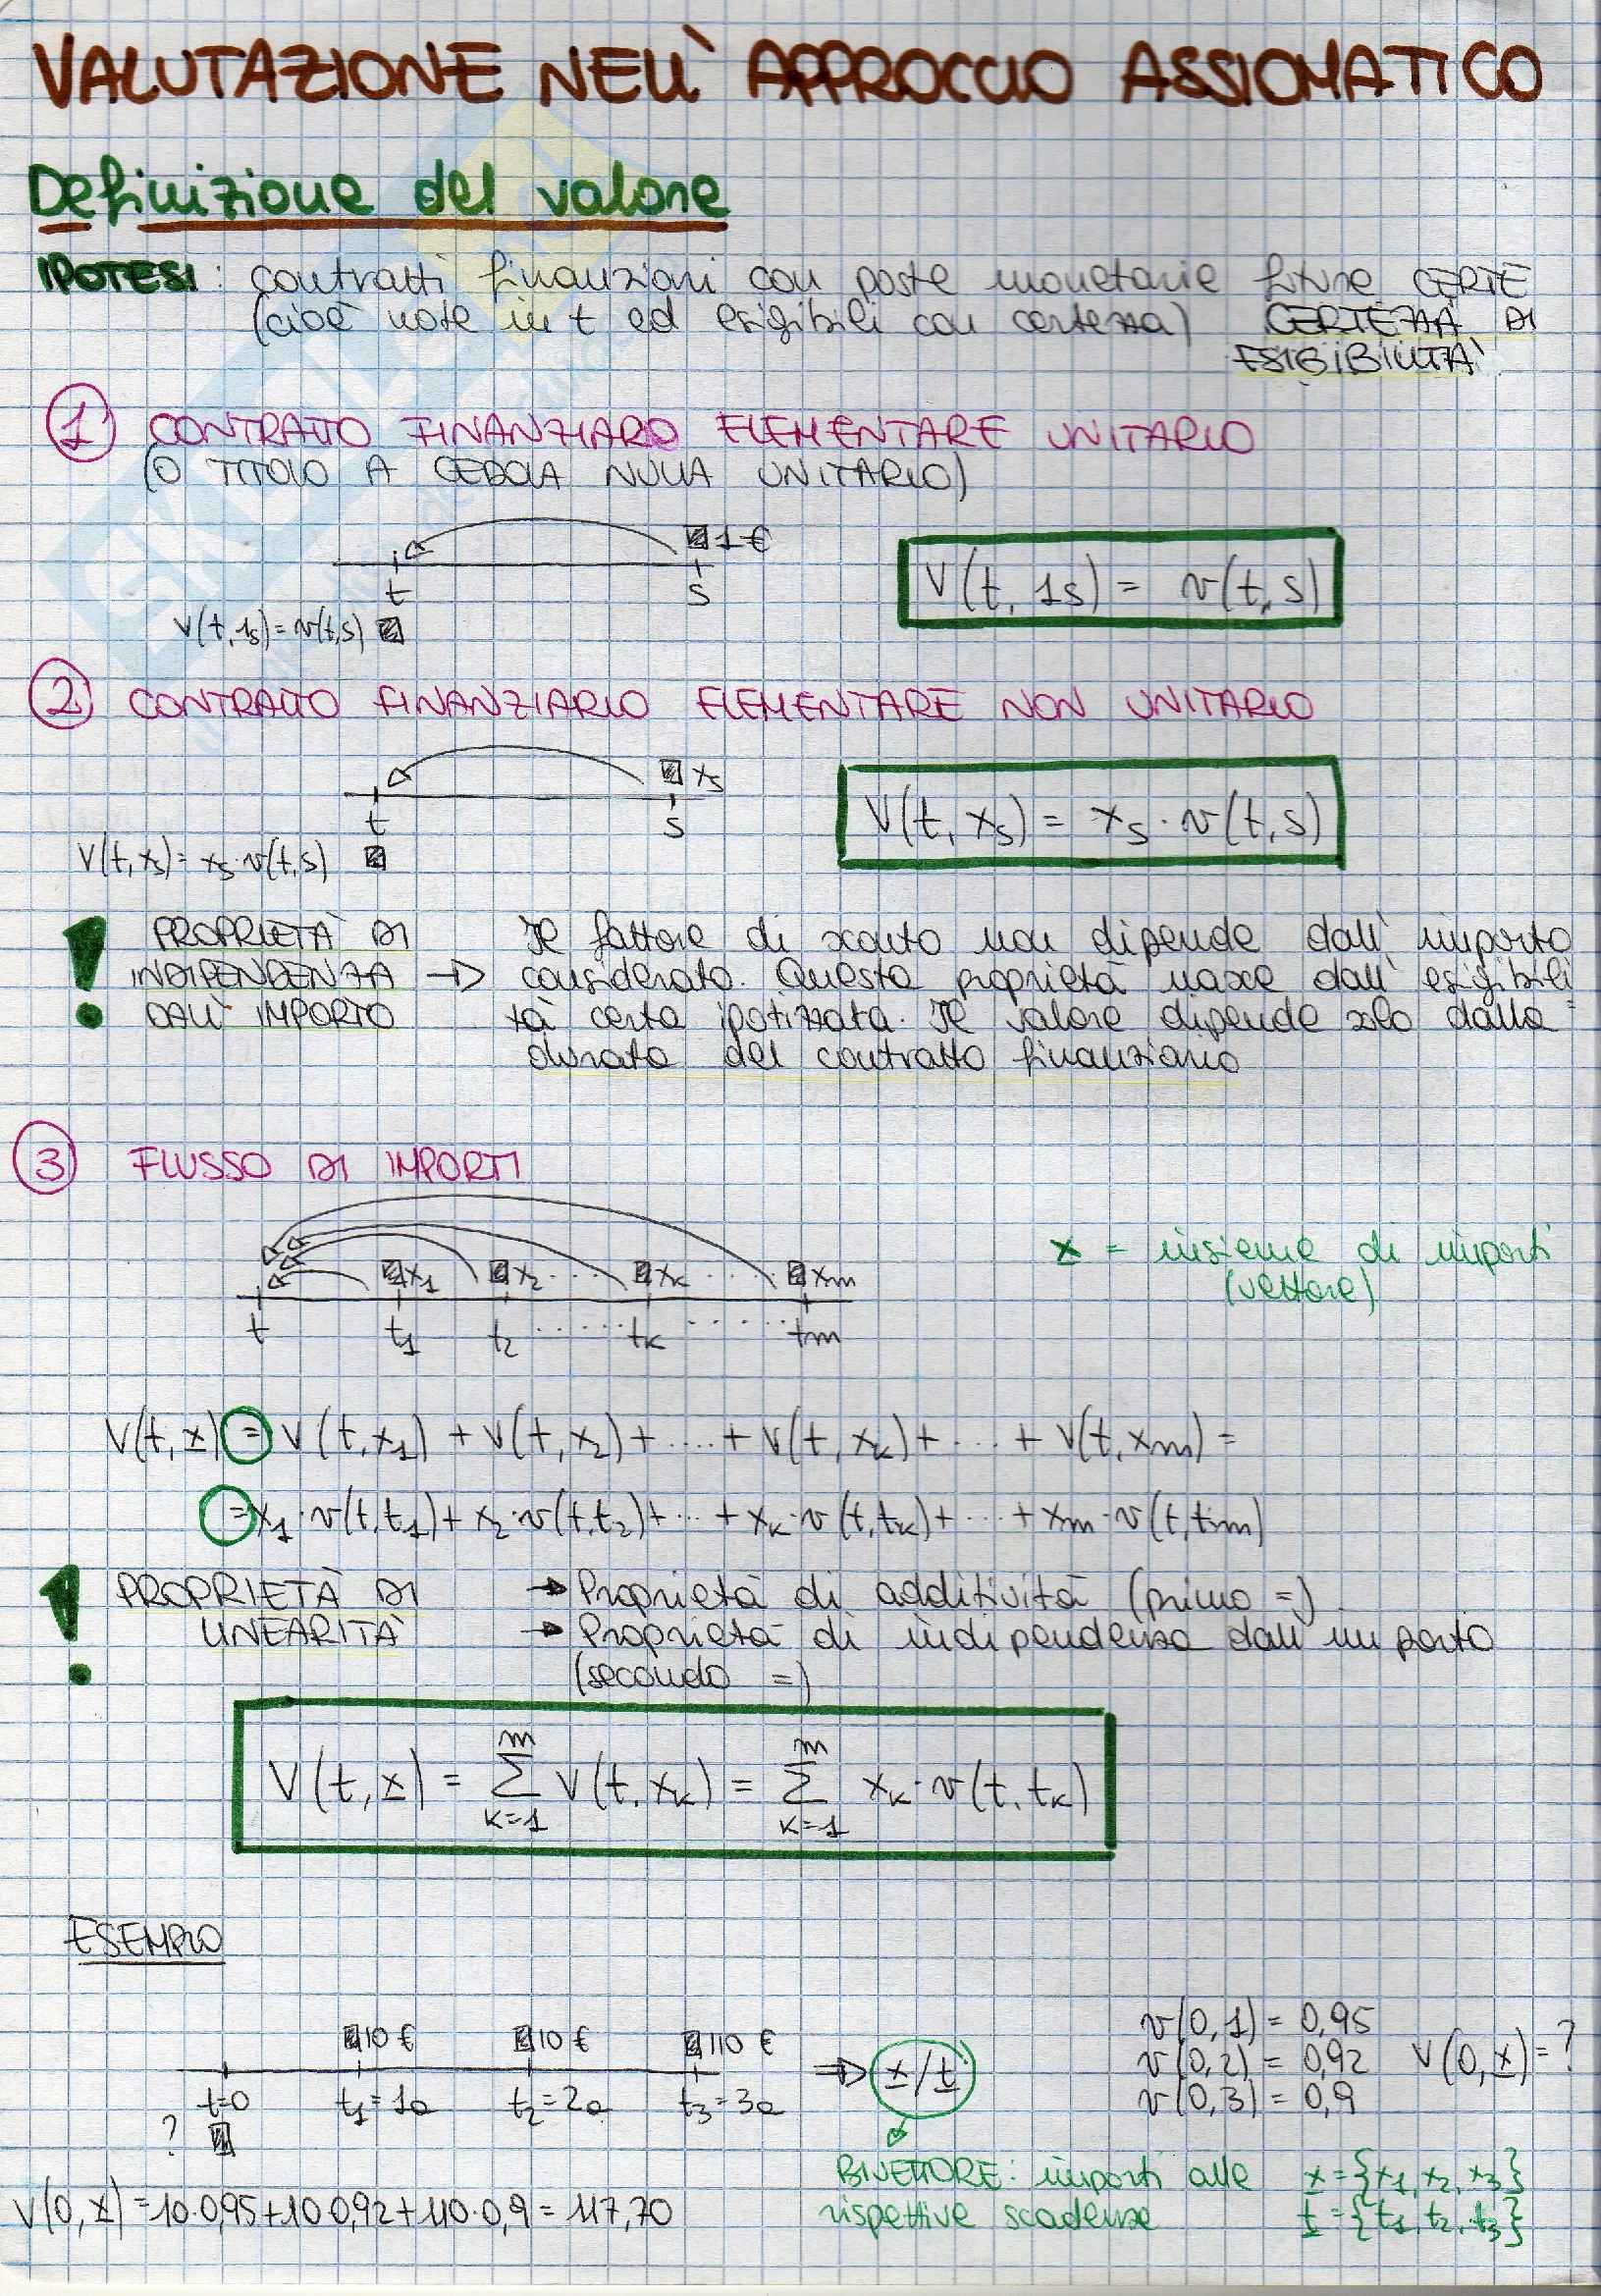 VALUTAZIONE NELL'APPROCCIO ASSIOMATICO
Definizione del valore
IPOTESI: contratti finanziari con poste monetarie future CERTE
(cioè note in t ed esigibili con certezza) CERTEZZA DI
ESIGIBILITÀ
1 CONTRATTO FINANZIARO ELEMENTARE UNITARIO
(O TITOLO A CEDOLA NULLA UNITARIO)
1€
t s
V(t,1s)=v(t,s)
V(t, 1s) = v(t,s)
2 CONTRATTO FINANZIARIO ELEMENTARE NON UNITARIO
xs
t s
V(t,xs)= xs·v(t,s)
V(t, xs) = xs·v(t,s)
! PROPRIETÀ DI INDIPENDENZA DALL'IMPORTO → Il fattore di sconto non dipende dall'importo
considerato. Questa proprietà nasce dall'esigibili
tà certa ipotizzata. Il valore dipende solo dalla
durata del contratto finanziario
3 FLUSSO DI IMPORTI
x1 x2 .... xk .... xm
t t1 t2 ...... tk ...... tm
x = insieme di importi
(vettore)
V(t,x) = V(t,x1) + V(t,x2)+....+ V(t,xk)+...+ V(t,xm) =
= x1·v(t,t1)+ x2·v(t,t2)+...+ xk·v(t,tk)+...+ xm·v(t,tm)
! PROPRIETÀ DI LINEARITÀ → Proprietà di additività (primo =)
→ Proprietà di indipendenza dall'importo
(secondo =)
V(t,x) = m∑k=1 V(t,xk) = m∑k=1 xk·v(t,tk)
ESEMPIO
10€ 10€ 110€
t=0 t1=1a t2=2a t3=3a
?
⇒ x/t
v(0,1) = 0,95
v(0,2) = 0,92 V(0,x)=?
v(0,3) = 0,9
BIVETTORE: importi alle x={x1,x2,x3}
rispettive scadenze t={t1,t2,t3}
V(0,x)=10·0,95+10·0,92+110·0,9= 117,70